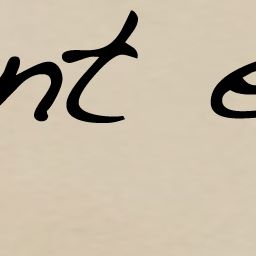 nt e